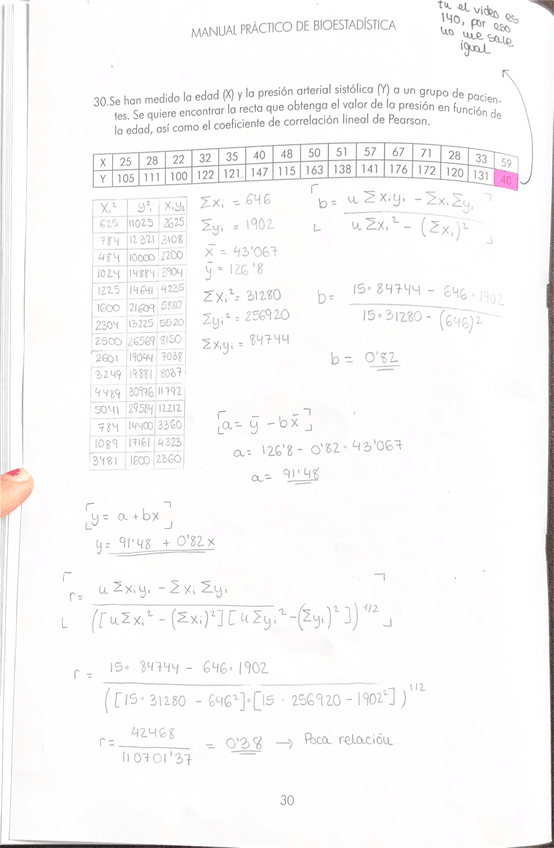 tu el video es
140, por eso
no me sale
igual
MANUAL PRÁCTICO DE BIOESTADÍSTICA
30.Se han medido la edad (X) y la presión arterial sistólica (Y) a un grupo de pacien-
tes. Se quiere encontrar la recta que obtenga el valor de la presión en función de
la edad, así como el coeficiente de correlación lineal de Pearson.
X 25 28 22 32 35 40 48 50 51 57 67 71 28 33 59
Y 105 111 100 122 121 147 115 163 138 141 176 172 120 131 40
Xi² yi² xiyi
625 11025 2625
784 12321 3108
484 10000 2200
1024 14884 3904
1225 14641 4235
1600 21609 5880
2304 13225 5520
2500 26569 8150
2601 19044 7038
3249 19881 8037
4489 30976 11792
5041 29584 12212
784 14400 3360
1089 17161 4323
3481 1600 2360
Σxi = 646
Σyi = 1902
x̄ = 43'067
ȳ = 126'8
Σxi² = 31280
Σyi² = 256920
Σxiyi = 84744
b = (n Σxiyi - Σxi Σyi) / (n Σxi² - (Σxi)²)
b = (15·84744 - 646·1902) / (15·31280 - (646)²)
b = 0'82
[a = ȳ - bx̄]
a = 126'8 - 0'82·43'067
a = 91'48
[y = a + bx]
y = 91'48 + 0'82x
r = (n Σxiyi - Σxi Σyi) / ([n Σxi² - (Σxi)²][n Σyi² - (Σyi)²])^1/2
r = (15·84744 - 646·1902) / ([15·31280 - 646²]·[15·256920 - 1902²])^1/2
r = 42468 / 110701'37 = 0'38 → Poca relación
30